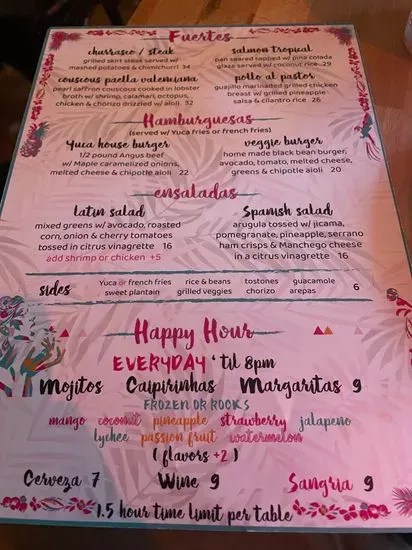 Fuertes
churrasco / steak
grilled skirt steak served w/
mashed potatoes & chimichurri 34
salmon tropical
pan seared topped w/ pina colada
glaze served w/ coconut rice 29
couscous paella valenciana
pearl saffron couscous cooked in lobster
broth w/ shrimp, calamari, octopus,
chicken & chorizo drizzled w/ aioli. 32
pollo al pastor
guajillo marinaded grilled chicken
breast w/ grilled pineapple
salsa & cilantro rice 26
Hamburguesas
(served w/ Yuca fries or french fries)
Yuca house burger
1/2 pound Angus beef
w/ Maple caramelized onions,
melted cheese & chipotle aioli 22
veggie burger
home made black bean burger,
avocado, tomato, melted cheese,
greens & chipotle aioli 20
ensaladas
latin salad
mixed greens w/ avocado, roasted
corn, onion & cherry tomatoes
tossed in citrus vinagrette 16
add shrimp or chicken +5
Spanish salad
arugula tossed w/ jicama,
pomegranate, pineapple, serrano
ham crisps & Manchego cheese
in a citrus vinagrette 16
sides
Yuca or french fries
sweet plantain
rice & beans
grilled veggies
tostones
chorizo
guacamole
arepas
6
Happy Hour
EVERYDAY 'til 8pm
Mojitos Caipirinhas Margaritas 9
FROZEN OR ROCKS
mango coconut pineapple strawberry jalapeno
lychee passion fruit watermelon
( flavors +2 )
Cerveza 7 Wine 9 Sangria 9
1.5 hour time limit per table